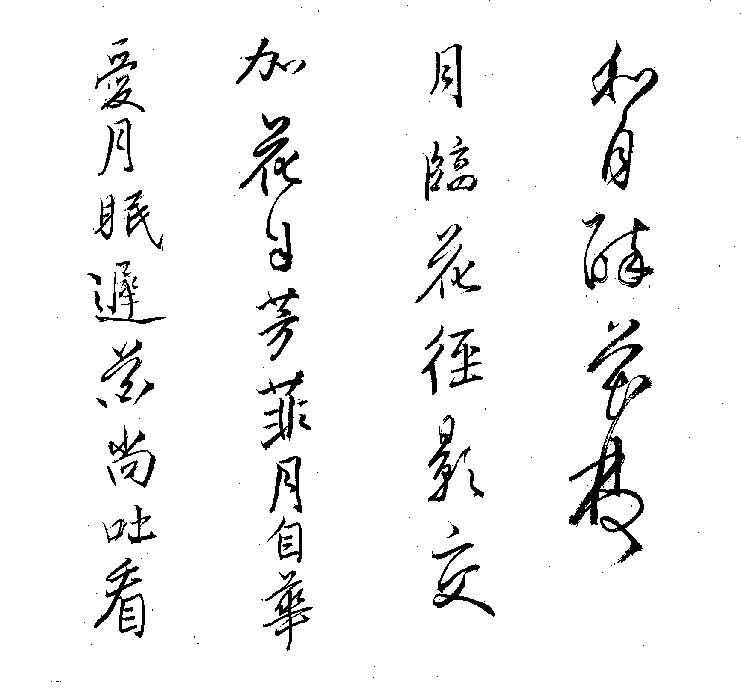 和月醉花枝
月臨花徑影交
加花自芳菲月自華
愛月眠遲花尚吐看